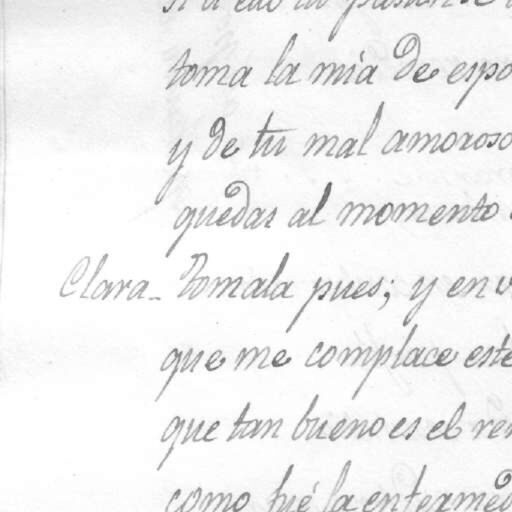 toma la mia de espo
y de tu mal amoroso
quedas al momento
Clara_ Tomala pues; y en v
que me complace este
que tan bueno es el re
como fué la enfermed